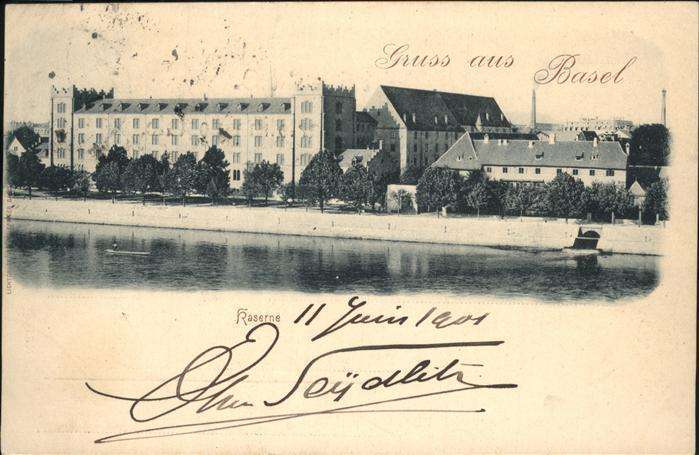 Gruss aus Basel
Kaserne
11 Juin 1901
Seydlitz